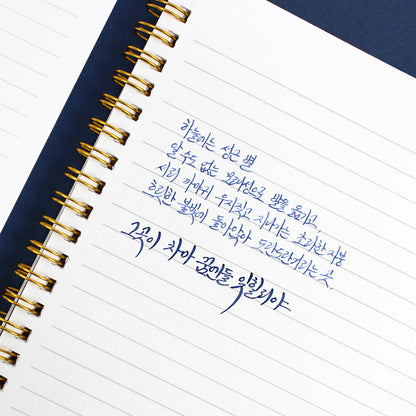 하늘에는 성근 별
알 수도 없는 모래성으로 발을 옮기고,
서리 까마귀 우지짖고 지나가는 초라한 지붕
흐릿한 불빛에 돌아앉아 도란도란거리는 곳,
그곳이 차마 꿈엔들 잊힐리야